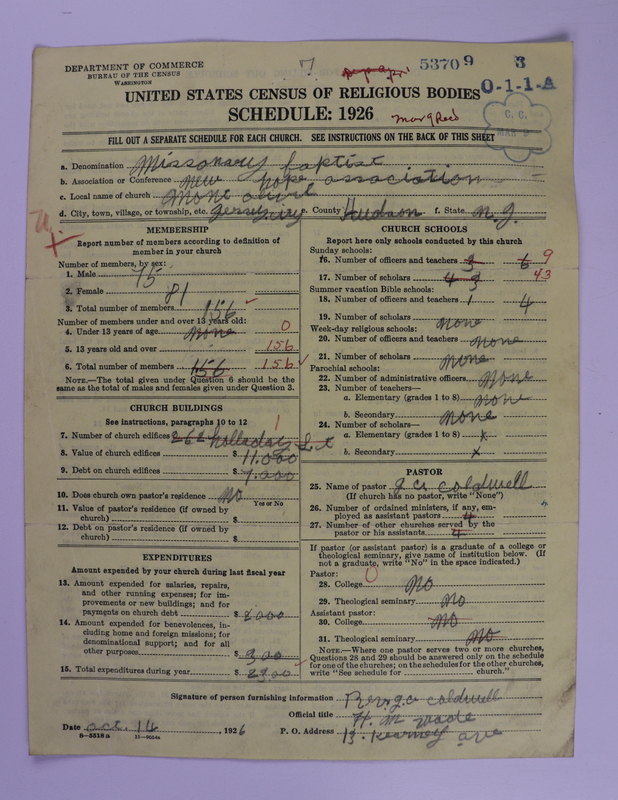 DEPARTMENT OF COMMERCE
BUREAU OF THE CENSUS
WASHINGTON
7
53709
3
0-1-1-A
UNITED STATES CENSUS OF RELIGIOUS BODIES
SCHEDULE: 1926
C. C.
MAR
FILL OUT A SEPARATE SCHEDULE FOR EACH CHURCH. SEE INSTRUCTIONS ON THE BACK OF THIS SHEET
a. Denomination Missonary baptist
b. Association or Conference new hope association
c. Local name of church mont olive
d. City, town, village, or township, etc. Jersey city County Hudson f. State N. J.
MEMBERSHIP
Report number of members according to definition of member in your church
Number of members, by sex:
1. Male 75
2. Female 81
3. Total number of members 156
Number of members under and over 13 years old:
4. Under 13 years of age none 0
5. 13 years old and over 156
6. Total number of members 156 156
NOTE.—The total given under Question 6 should be the same as the total of males and females given under Question 3.
CHURCH BUILDINGS
See instructions, paragraphs 10 to 12
7. Number of church edifices 262 holladay St 1
8. Value of church edifices $ 11,000
9. Debt on church edifices $ 7,000
10. Does church own pastor's residence No
Yes or No
11. Value of pastor's residence (if owned by church) $
12. Debt on pastor's residence (if owned by church) $
EXPENDITURES
Amount expended by your church during last fiscal year
13. Amount expended for salaries, repairs, and other running expenses; for improvements or new buildings; and for payments on church debt $ 2000
14. Amount expended for benevolences, including home and foreign missions; for denominational support; and for all other purposes $ 300
15. Total expenditures during year $ 2300
CHURCH SCHOOLS
Report here only schools conducted by this church
Sunday schools:
16. Number of officers and teachers 3 6 9
17. Number of scholars 4 3 43
Summer vacation Bible schools:
18. Number of officers and teachers 1 4
19. Number of scholars none
Week-day religious schools:
20. Number of officers and teachers none
21. Number of scholars none
Parochial schools:
22. Number of administrative officers None
23. Number of teachers—
a. Elementary (grades 1 to 8) none
b. Secondary none
24. Number of scholars—
a. Elementary (grades 1 to 8) x
b. Secondary x
PASTOR
25. Name of pastor g a coldwell
(If church has no pastor, write "None")
26. Number of ordained ministers, if any, employed as assistant pastors 4
27. Number of other churches served by the pastor or his assistants 4
If pastor (or assistant pastor) is a graduate of a college or theological seminary, give name of institution below. (If not a graduate, write "No" in the space indicated.)
Pastor: 0
28. College No
29. Theological seminary No
Assistant pastor:
30. College No
31. Theological seminary No
NOTE.—Where one pastor serves two or more churches, Questions 28 and 29 should be answered only on the schedule for one of the churches; on the schedules for the other churches, write "See schedule for church."
Signature of person furnishing information Rev. g a coldwell
Official title H. M wade
Date oct. 14, 1926 P. O. Address 13. Kearney ave
8-5518a